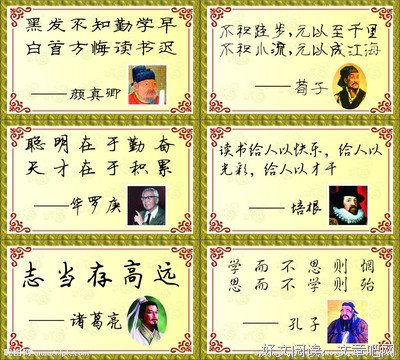 黑发不知勤学早
白首方悔读书迟
——颜真卿
不积跬步,无以至千里
不积小流,无以成江海
——荀子
聪明在于勤奋
天才在于积累
——华罗庚
读书给人以快乐，给人以
光彩，给人以才干
——培根
志当存高远
——诸葛亮
学而不思则惘
思而不学则殆
——孔子
好文阅读-文章吧网